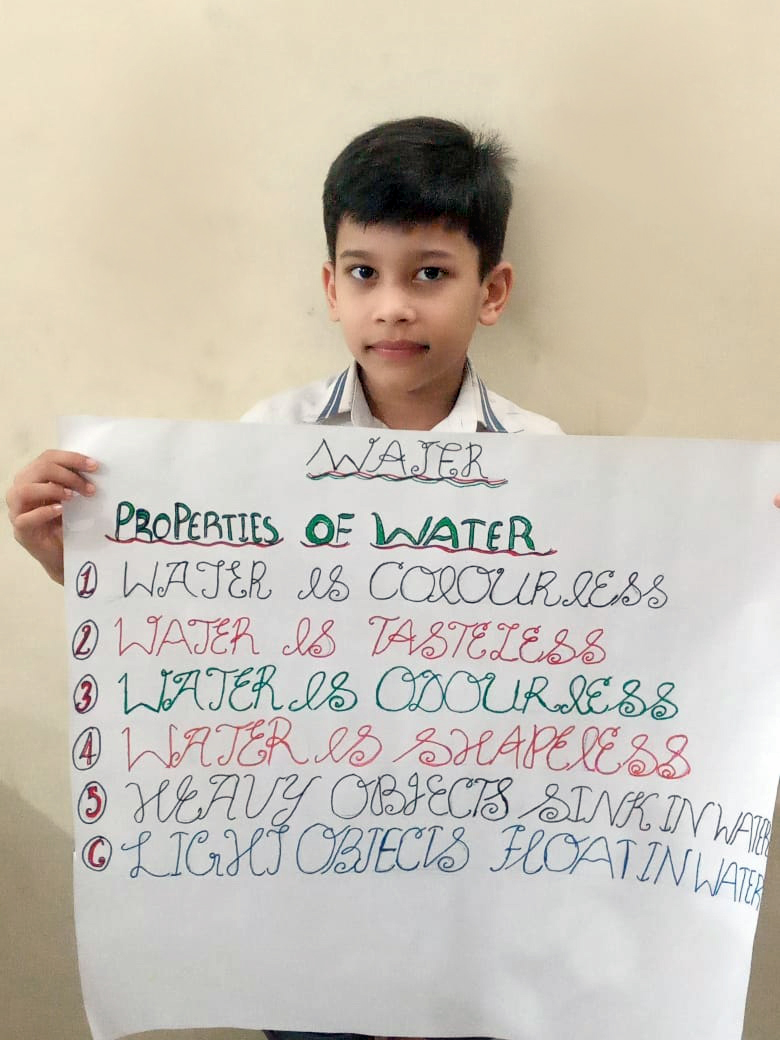 WATER
PROPERTIES OF WATER
1 WATER IS COLOURLESS
2 WATER IS TASTELESS
3 WATER IS ODOURLESS
4 WATER IS SHAPELESS
5 HEAVY OBJECTS SINK IN WATER
6 LIGHT OBJECTS FLOAT IN WATER